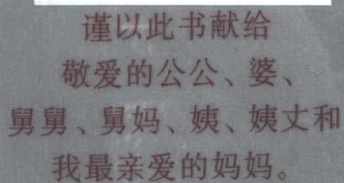 谨以此书献给
敬爱的公公、婆、
舅舅、舅妈、姨、姨丈和
我最亲爱的妈妈。